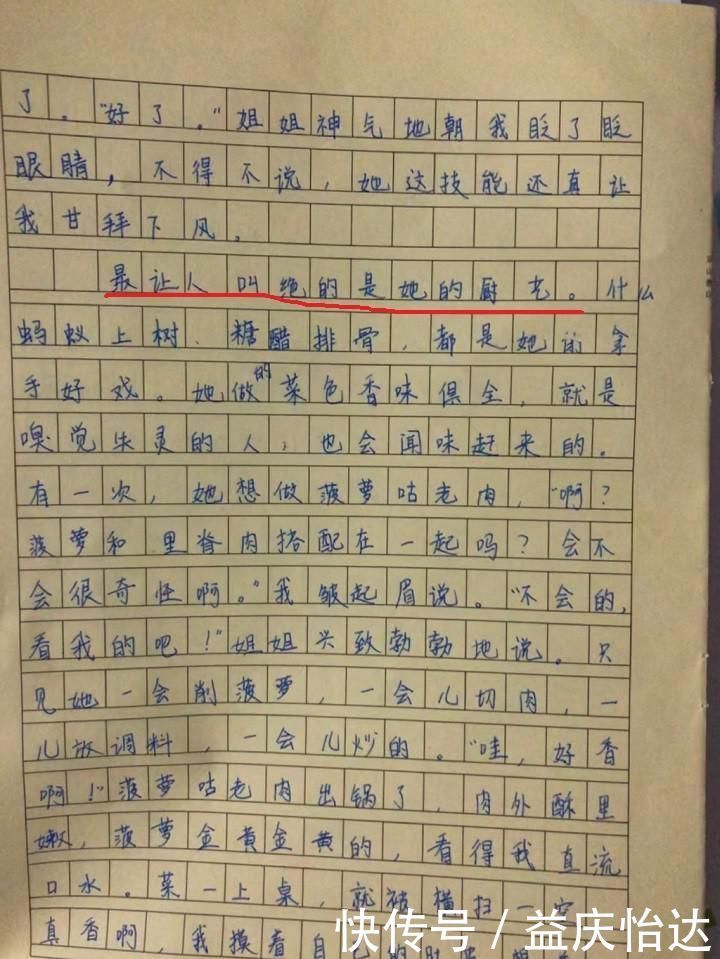 了。“好了。”姐姐神气地朝我眨了眨
眼睛，不得不说，她这技能还真让
我甘拜下风。
最让人叫绝的是她的厨艺。什么
蚂蚁上树、糖醋排骨，都是她的拿
手好戏。她做的菜色香味俱全，就是
嗅觉失灵的人，也会闻味赶来的。
有一次，她想做菠萝咕老肉，“啊？
菠萝和里脊肉搭配在一起吗？会不
会很奇怪啊。”我皱起眉说。“不会的，
看我的吧！”姐姐兴致勃勃地说。只
见她一会削菠萝，一会儿切肉，一
儿放调料，一会儿炒的。“哇，好香
啊！”菠萝咕老肉出锅了，肉外酥里
嫩，菠萝金黄金黄的，看得我直流
口水。菜一上桌，就被横扫一空
真香啊，我摸着自己的肚
快传号/益庆怡达